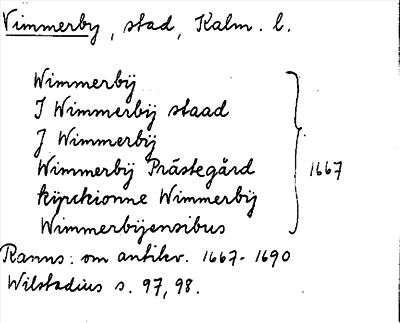 Vimmerby, stad, Kalm. l.
Wimmerbÿ
I Wimmerbÿ staad
J Wimmerbÿ
Wimmerbÿ Prästegård
kÿrckionne Wimmerbÿ
Wimmerbÿensibus
1667
Ranns: om antikv. 1667-1690
Wilstadius s. 97, 98.